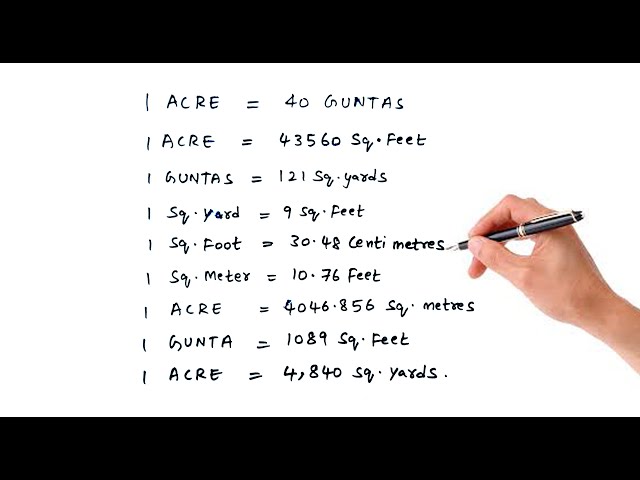 1 ACRE = 40 GUNTAS
1 ACRE = 43560 Sq. Feet
1 GUNTAS = 121 Sq. yards
1 Sq. Yard = 9 Sq. Feet
1 Sq. Foot = 30.48 Centi metres
1 Sq. Meter = 10.76 Feet
1 ACRE = 4046.856 Sq. metres
1 GUNTA = 1089 Sq. Feet
1 ACRE = 4,840 Sq. Yards.